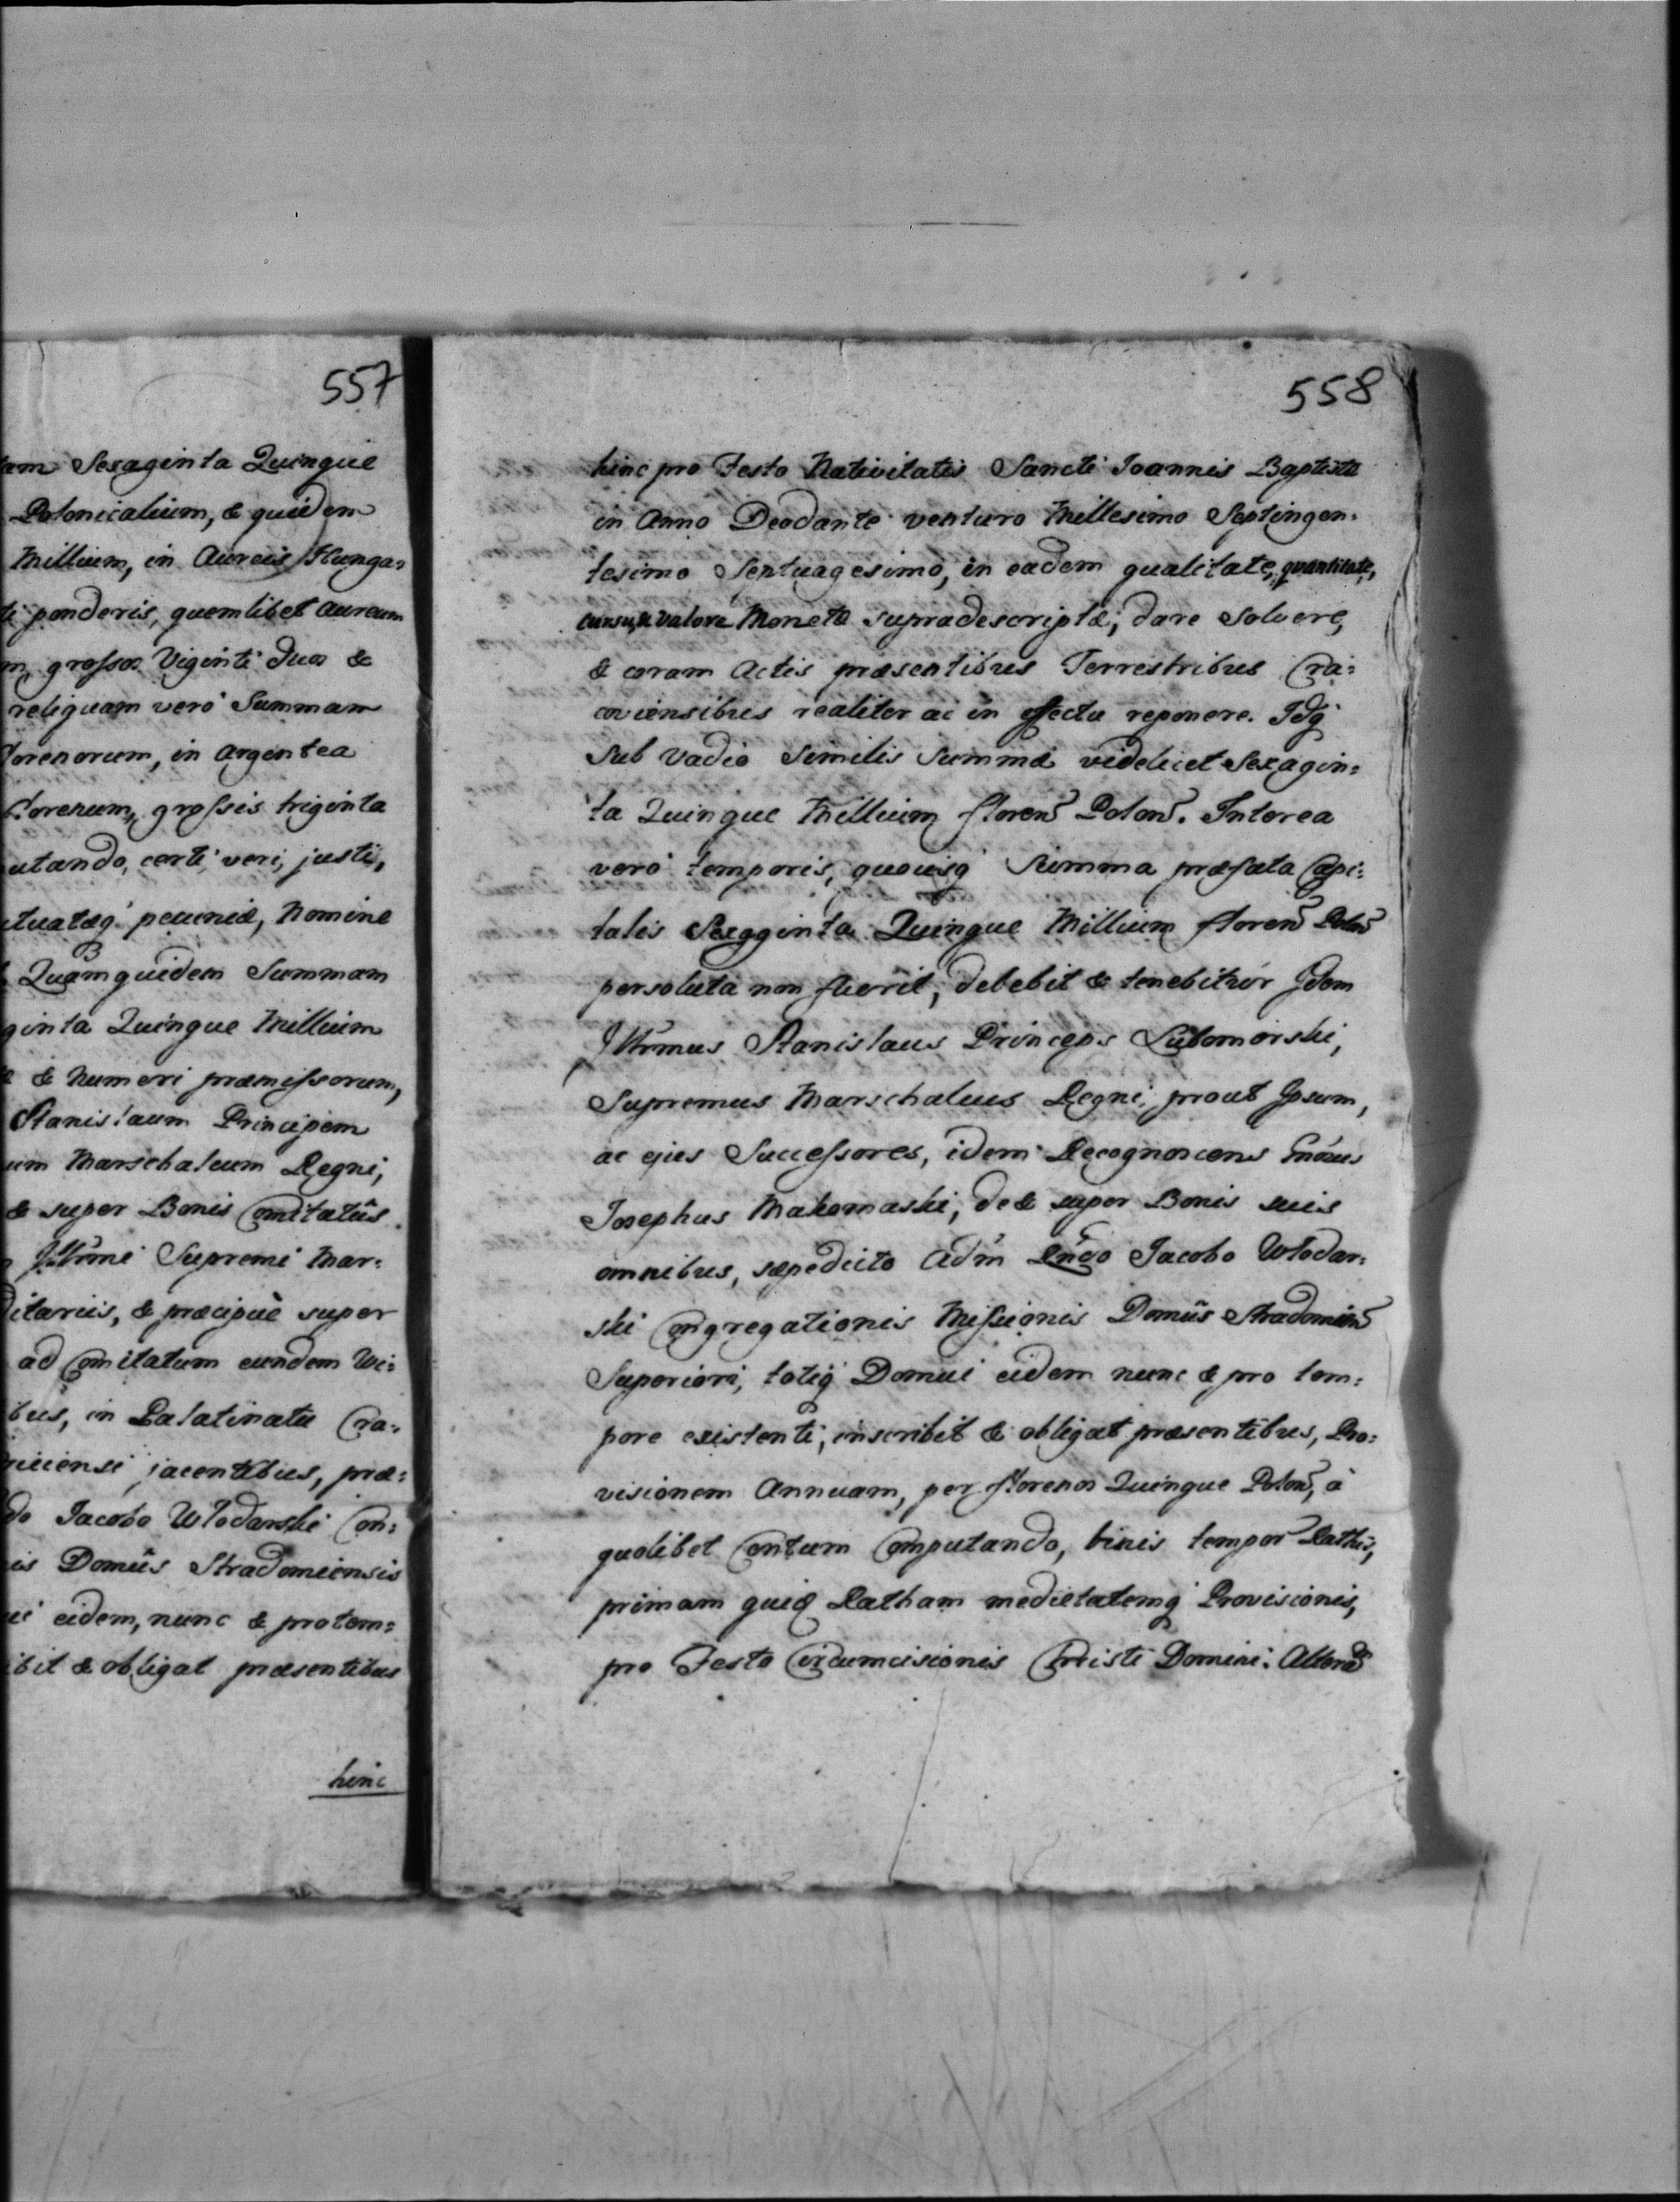 557
tam Sexaginta Quinque
Polonicalium, & quidem
Millium, in Aureis Hunga=
ti ponderis, quemlibet aureum
m, grossos Viginti duos &
reliquam verò Summam
florenorum, in argentea
florenum, grossis triginta
utando, certi, veri, justi,
tuatæq; pecuniæ, Nomine
Quamquidem Summam
ginta Quinque Millium
& Numeri præmissorum,
Stanislaum Principem
um Marschalcum Regni,
& super Bonis Comitatûs
Illrmi Supremi Mar=
ditariis, & præcipuè super
ad Comitatum eundem Wi=
bus, in Palatinatu Cra=
iciensi jacentibus, præ=
do Jacobo Wlodarski Con=
is Domûs Stradomiensis
ui eidem, nunc & pro tem=
ibit & obligat præsentibus
hinc
558
hinc pro Festo Nativitatis Sancti Joannis Baptistæ
in Anno Deodante venturo Millesimo Septingen=
tesimo Septuagesimo, in eadem qualitate, quantitate,
cursu, & valore Monetæ supradescriptæ, dare solvere,
& coram Actis præsentibus Terrestribus Cra=
coviensibus realiter ac in effectu reponere. Idq;
sub vadio similis Summæ videlicet Sexagin=
ta Quinque Millium floren Polon. Interea
verò temporis, quousq; Summa præfata Capi=
talis Sexaginta Quinque Millium floren Polon
persoluta non fuerit, debebit & tenebitur Idem
Illrmus Stanislaus Princeps Lubomirski,
Supremus Marschalcus Regni, prout Ipsum,
ac ejus Successores, idem Recognoscens Gnosus
Josephus Makomaski, de & super Bonis suis
omnibus, sæpedicto Adm Rndo Jacobo Wlodar=
ski Congregationis Missionis Domûs Stradomien
Superiori, totiq; Domui eidem nunc & pro tem=
pore existenti, inscribit & obligat præsentibus, Pro=
visionem Annuam, per florenos Quinque Polon, à
quolibet Centum Computando, binis tempor Rathis,
primam quid Ratham medietatemq; Provisionis,
pro Festo Circumcisionis Christi Domini: Alteram